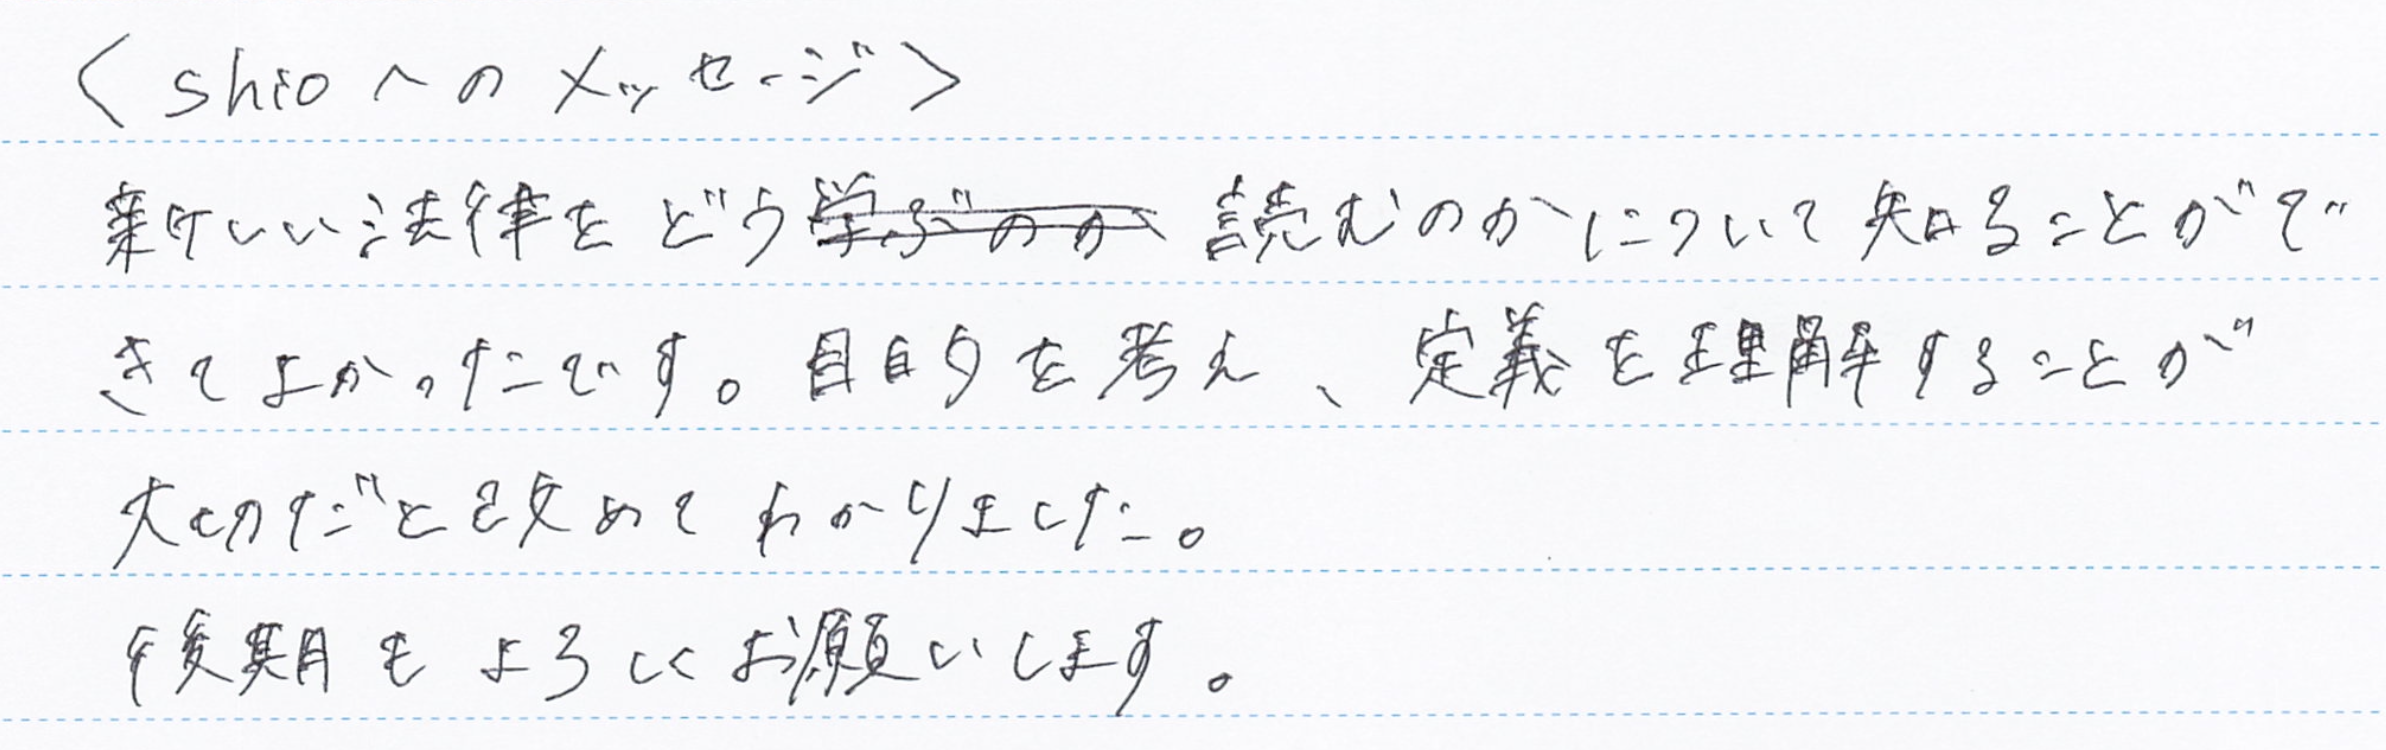 <shioへのメッセージ>
新しい法律をどう学ぶのか読むのかについて知ることがで
きてよかったです。目的を考え、定義を理解することが
大切だと改めてわかりました。
後期もよろしくお願いします。